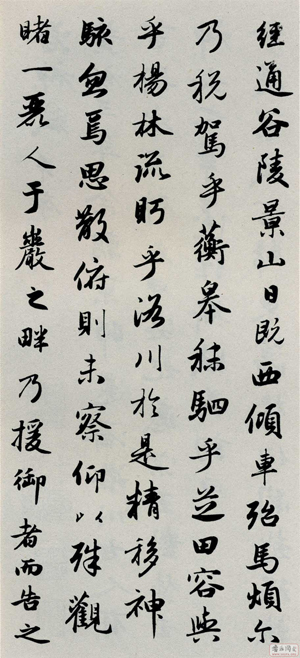 經通谷陵景山日既西傾車殆馬煩尔
乃税駕乎蘅皋秣駟乎芝田容與
乎楊林流眄乎洛川於是精移神
駭忽焉思散俯則未察仰以殊觀
睹一麗人于巖之畔乃援御者而告之